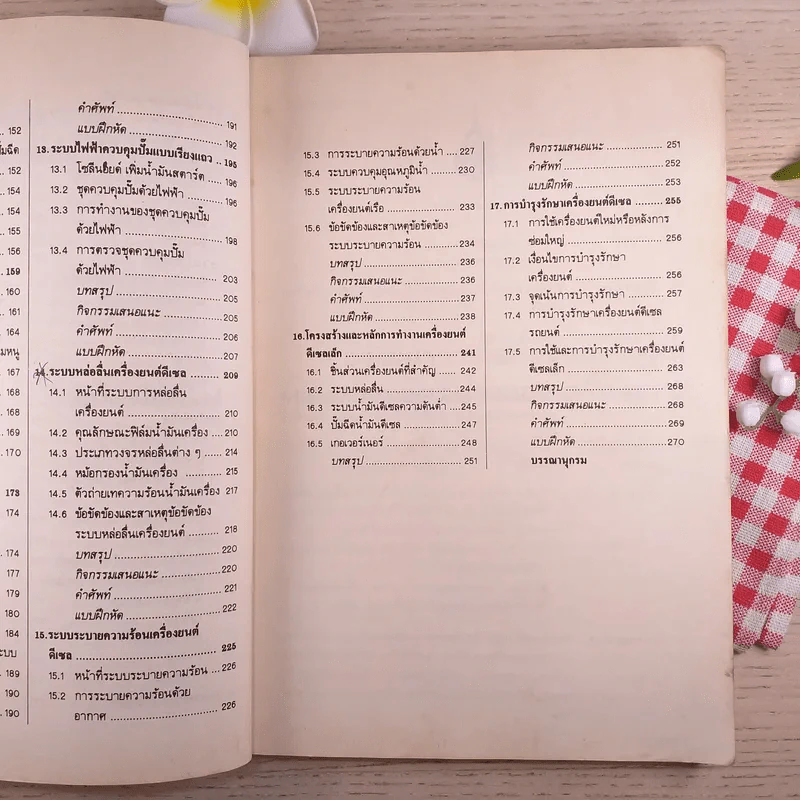 152
มฉีด
152
154
154
155
156
159
160
161
164
มหมู
167
168
168
169
170
173
174
174
177
179
180
184
ะบบ
189
190
190
คำศัพท์ 191
แบบฝึกหัด 192
13. ระบบไฟฟ้าควบคุมปั๊มแบบเรียงแถว 195
13.1 โซลีนอยด์ เพิ่มน้ำมันสตาร์ต 196
13.2 ชุดควบคุมปั๊มด้วยไฟฟ้า 196
13.3 การทำงานของชุดควบคุมปั๊ม
ด้วยไฟฟ้า 198
13.4 การตรวจชุดควบคุมปั๊ม
ด้วยไฟฟ้า 203
บทสรุป 205
กิจกรรมเสนอแนะ 205
คำศัพท์ 206
แบบฝึกหัด 207
14. ระบบหล่อลื่นเครื่องยนต์ดีเซล 209
14.1 หน้าที่ระบบการหล่อลื่น
เครื่องยนต์ 210
14.2 คุณลักษณะฟิล์มน้ำมันเครื่อง 210
14.3 ประเภทวงจรหล่อลื่นต่าง ๆ 214
14.4 หม้อกรองน้ำมันเครื่อง 215
14.5 ตัวถ่ายเทความร้อนน้ำมันเครื่อง 217
14.6 ข้อขัดข้องและสาเหตุข้อขัดข้อง
ระบบหล่อลื่นเครื่องยนต์ 218
บทสรุป 220
กิจกรรมเสนอแนะ 220
คำศัพท์ 221
แบบฝึกหัด 222
15. ระบบระบายความร้อนเครื่องยนต์
ดีเซล 225
15.1 หน้าที่ระบบระบายความร้อน 226
15.2 การระบายความร้อนด้วย
อากาศ 226
15.3 การระบายความร้อนด้วยน้ำ 227
15.4 ระบบควบคุมอุณหภูมิน้ำ 230
15.5 ระบบระบายความร้อน
เครื่องยนต์เรือ 233
15.6 ข้อขัดข้องและสาเหตุข้อขัดข้อง
ระบบระบายความร้อน 234
บทสรุป 236
กิจกรรมเสนอแนะ 236
คำศัพท์ 237
แบบฝึกหัด 238
16. โครงสร้างและหลักการทำงานเครื่องยนต์
ดีเซลเล็ก 241
16.1 ชิ้นส่วนเครื่องยนต์ที่สำคัญ 242
16.2 ระบบหล่อลื่น 244
16.3 ระบบน้ำมันดีเซลความดันต่ำ 245
16.4 ปั๊มฉีดน้ำมันดีเซล 247
16.5 เกอเวอร์เนอร์ 248
บทสรุป 251
กิจกรรมเสนอแนะ 251
คำศัพท์ 252
แบบฝึกหัด 253
17. การบำรุงรักษาเครื่องยนต์ดีเซล 255
17.1 การใช้เครื่องยนต์ใหม่หรือหลังการ
ซ่อมใหญ่ 256
17.2 เงื่อนไขการบำรุงรักษา
เครื่องยนต์ 256
17.3 จุดเน้นการบำรุงรักษา 257
17.4 การบำรุงรักษาเครื่องยนต์ดีเซล
รถยนต์ 259
17.5 การใช้และการบำรุงรักษาเครื่องยนต์
ดีเซลเล็ก 263
บทสรุป 268
กิจกรรมเสนอแนะ 268
คำศัพท์ 269
แบบฝึกหัด 270
บรรณานุกรม